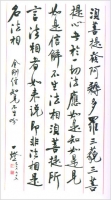 須菩提發阿耨多羅三藐三菩
提心者於一切法應如是知如是見
如是信解不生法相須菩提所
言法相者如來說即非法相是
名法相 金剛經知見不生分